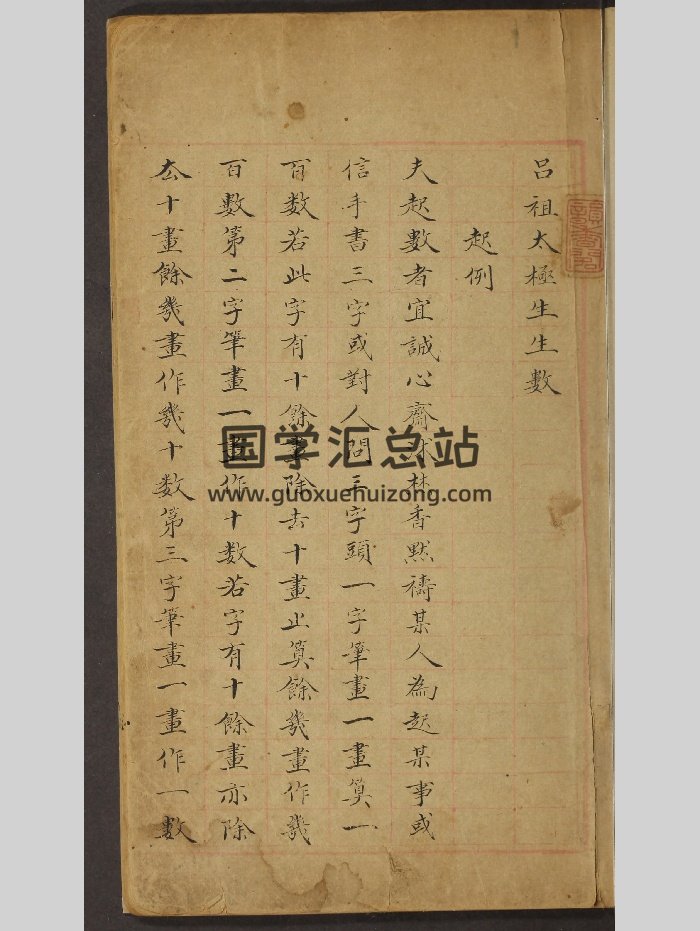 呂祖太極生生數
起例
夫起數者宜誠心齋沐焚香默禱某人為起某事或
信手書三字或對人問三字頭一字筆畫一畫算一
百数若此字有十餘畫除去十畫止算餘幾畫作幾
百數第二字筆畫一畫作十数若字有十餘畫亦除
去十畫餘幾畫作幾十数第三字筆畫一畫作一數
国学汇总站
www.guoxuehuizong.com